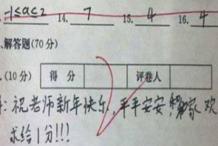 -1≤a≤2 14. 7 15. 4 16. 4
.解答题(70分)
.(10分) 得 分 评卷人
:祝老师新年快乐,平平安安,家欢
求给1分!!!